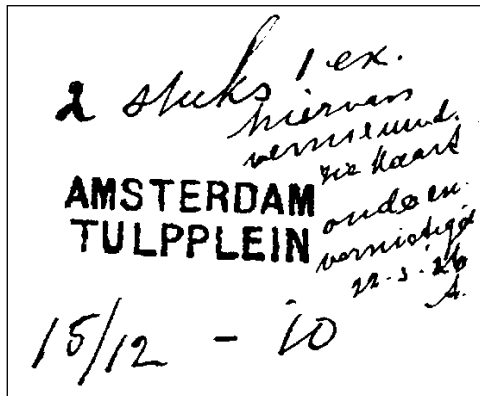 2 stuks 1 ex.
hiervan
vernieuwd.
zie kaart
oude ex.
vernietigd
22.3.26
A.
AMSTERDAM
TULPPLEIN
15/12 - 10